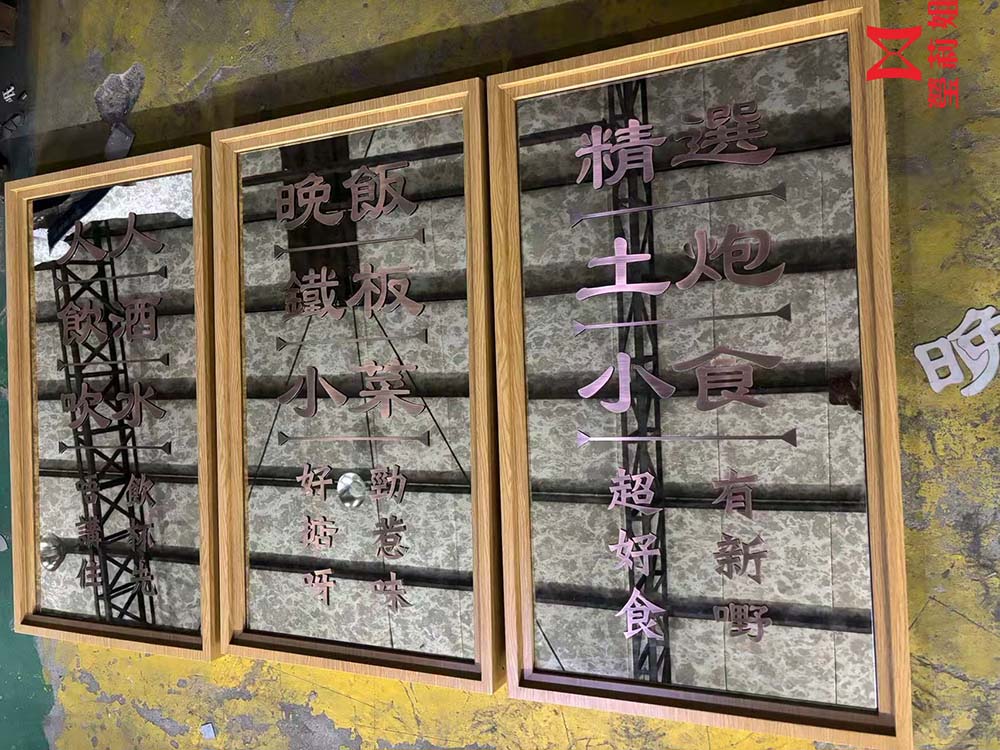 人人
飲酒
吹水
唔講住
飲杯先
晚飯
鐵板
小菜
好掂呀
勁惹味
精選
土炮
小食
超好食
有新嘢
晚